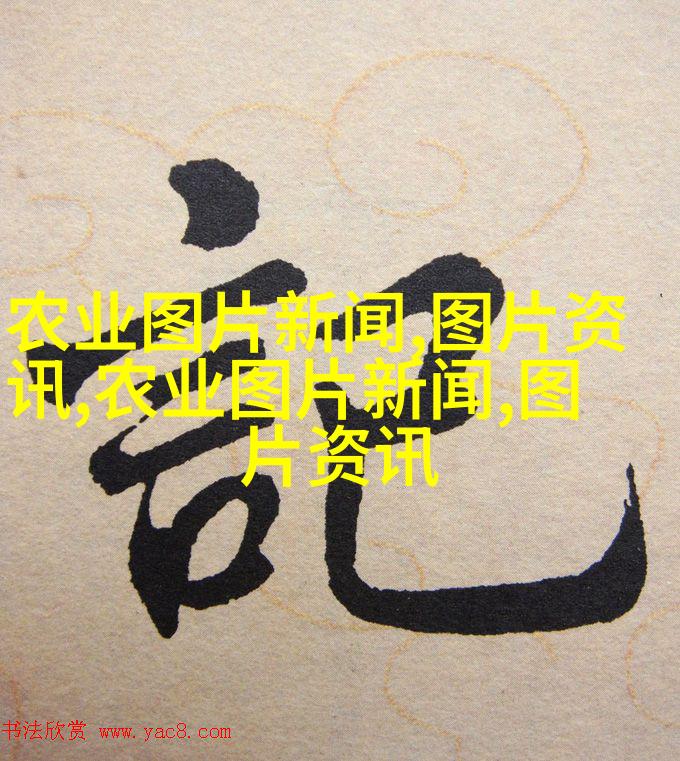 記
农业图片新闻,图片资
讯,农业图片新闻,图
片资讯
书法欣赏 www.yac8.com